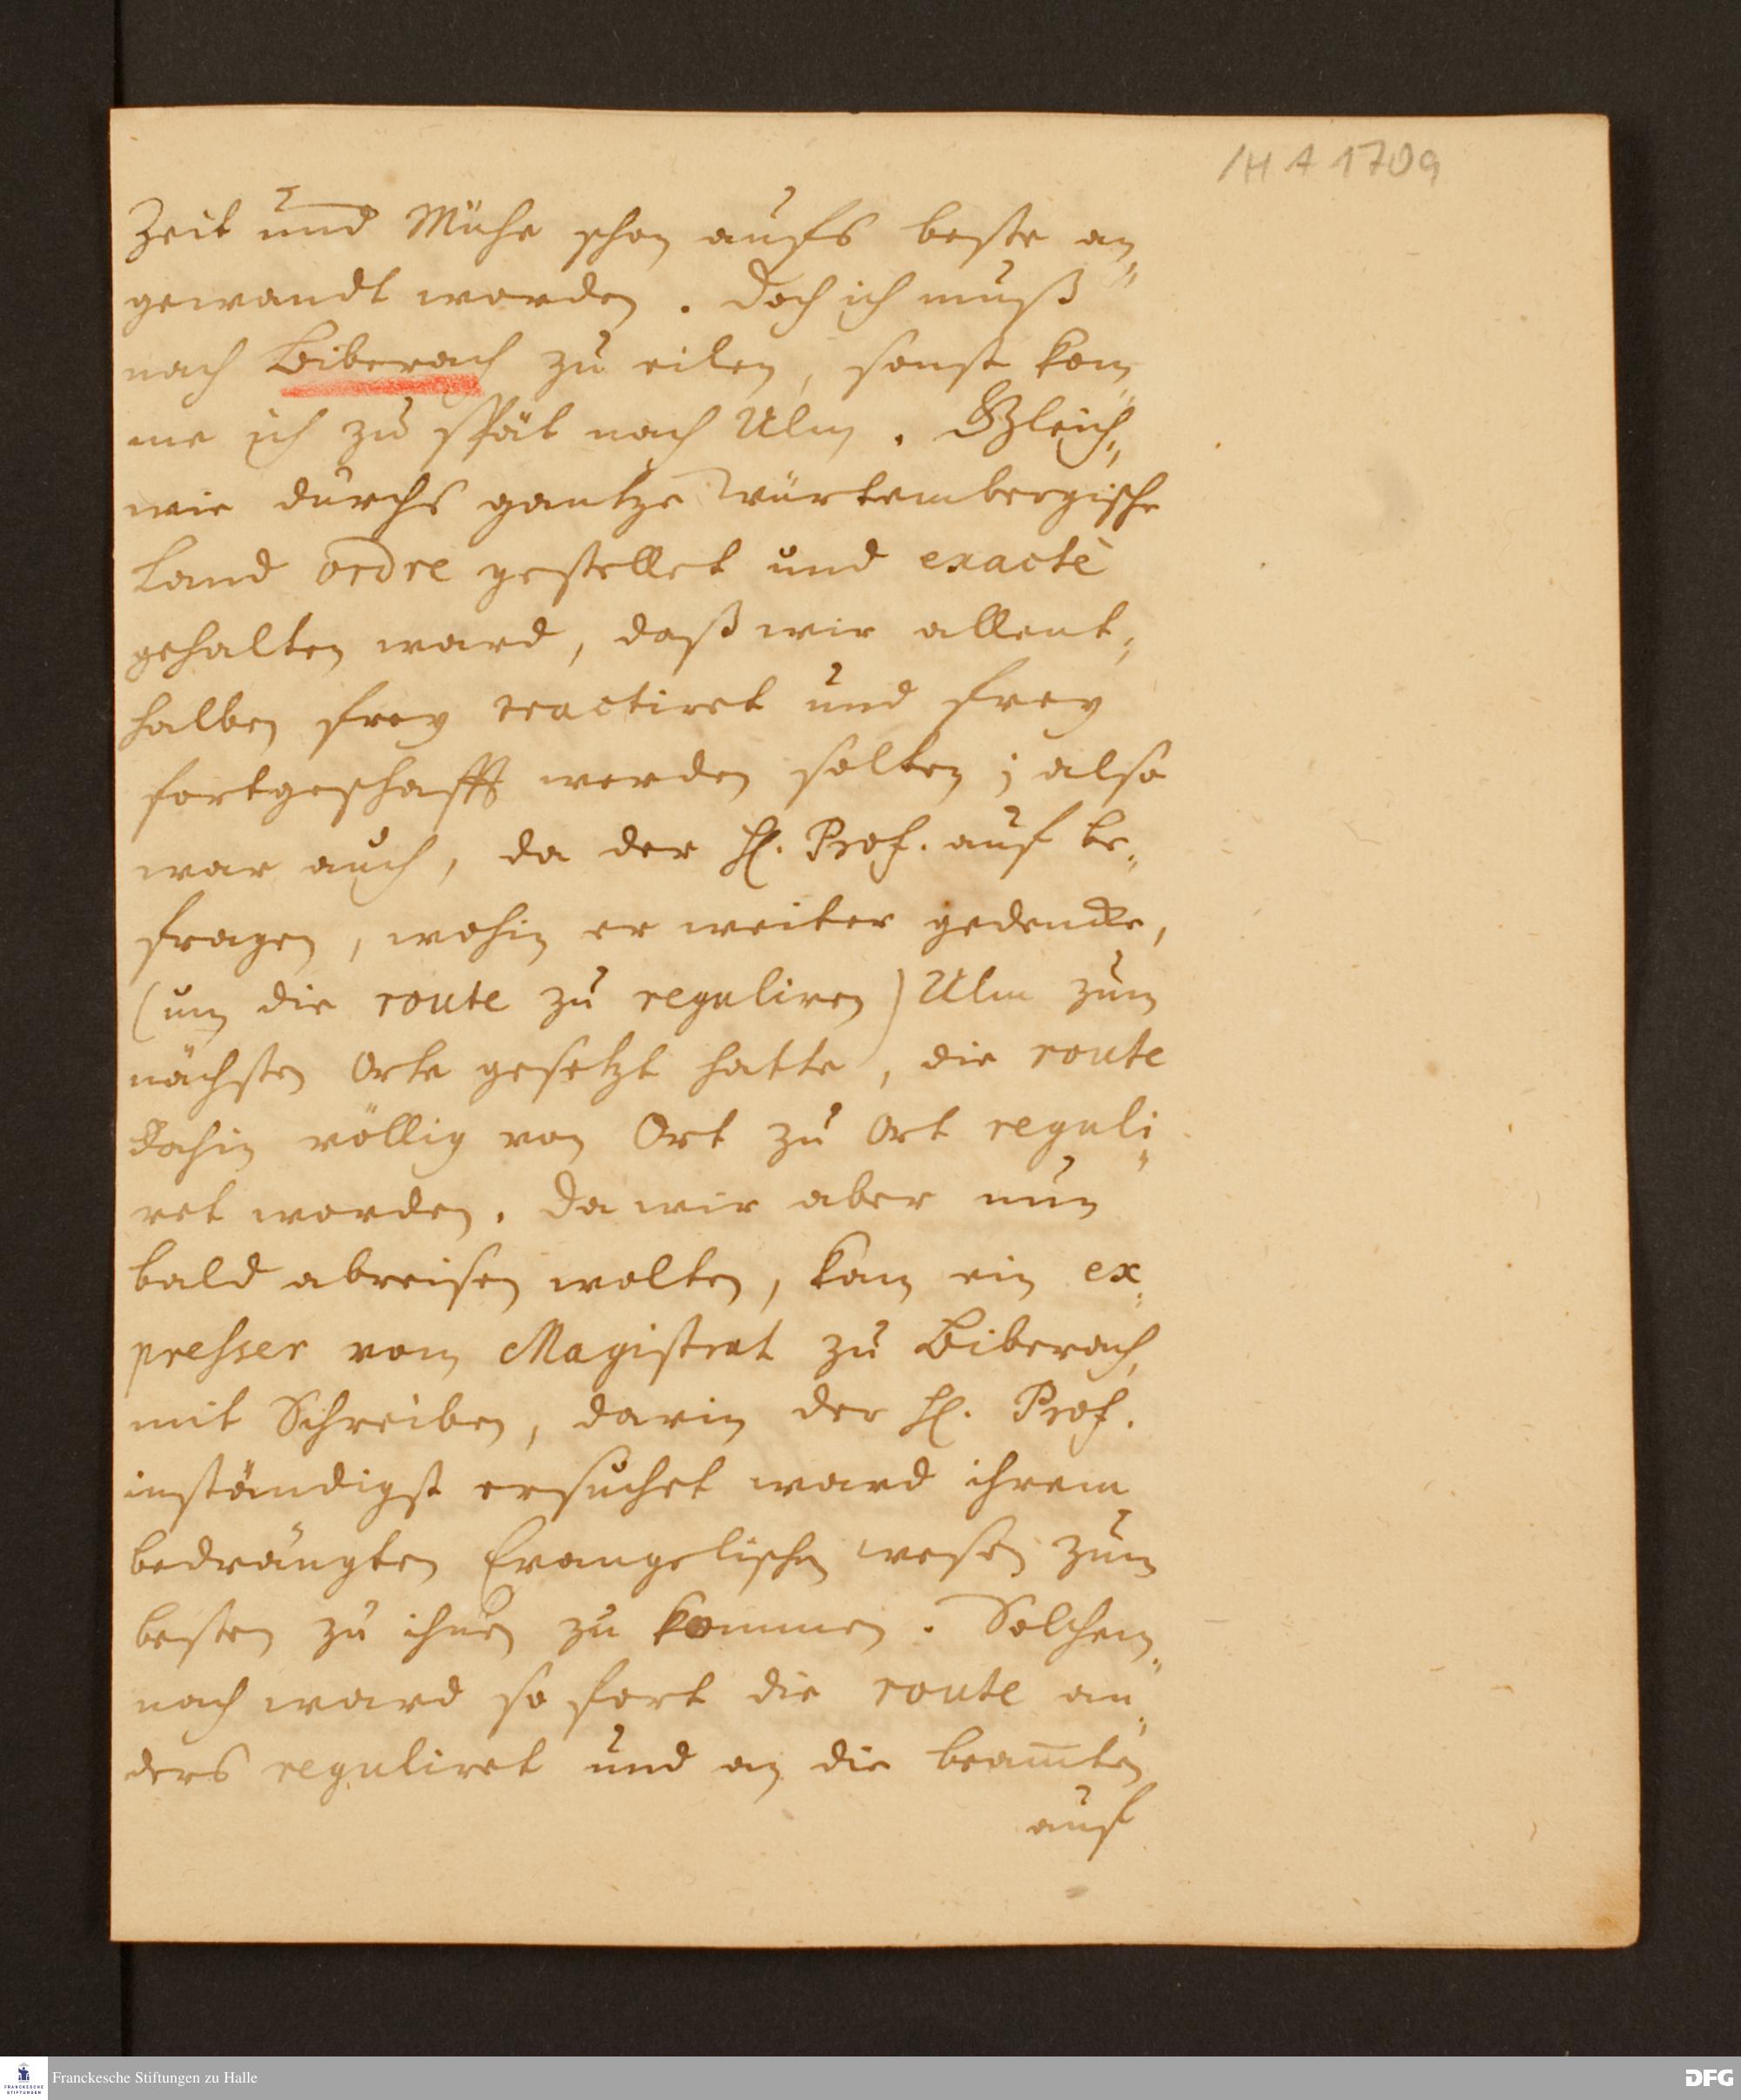 /H A 1709
Zeit und Mühe schon aufs beste an„
gewandt worden. Doch ich muß
nach Biberach zu eilen, sonst kom„
me ich zu spät nach Ulm. Gleich„
wie durchs gantze Würtembergische
Land ordre gestellet und exactè
gehalten ward, daß wir allent„
halben frey tractiret und frey
fortgeschafft werden solten; also
war auch, da der H. Prof. auf be„
fragen, wohin er weiter gedencke,
(um die route zu reguliren) Ulm zum
nächsten Orte gesetzt hatte, die route
dahin völlig von Ort zu Ort reguli„
ret worden. Da wir aber nun
bald abreisen wolten, kam ein ex„
presser vom Magistrat zu Biberach,
mit Schreiben, darin der H. Prof.
inständigst ersuchet ward ihrem
bedrängten Evangelischen wesen zum
besten zu ihnen zu kommen. Solchem„
nach ward so fort die route an„
ders reguliret und an die beamten
auf
FRANCKESCHE STIFTUNGEN
Franckesche Stiftungen zu Halle
DFG